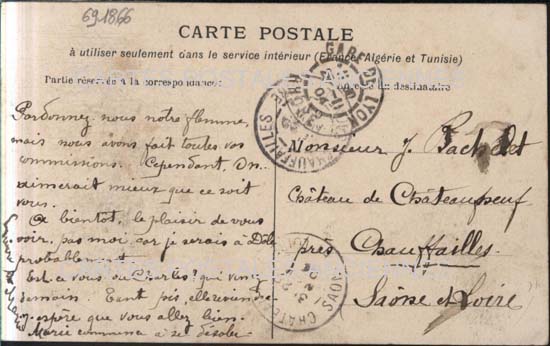 69.1866
CARTE POSTALE
à utiliser seulement dans le service intérieur (France, Algérie et Tunisie)
Partie réservée à la correspondance
du destinataire
GARE DE LYON
CHAUFFAILLES
Pardonnez nous notre flemme,
mais nous avons fait toutes vos
commissions. Cependant, On
aimerait mieux que ce soit
vous.
A bientôt, le plaisir de vous
voir, pas moi car je serais à Dôle
probablement
Est-ce vous ou Charles? qui vient
demain. Tant pis, elle
espère que vous allez bien
Marie commence à se désoler
Monsieur J.
Château de Châteauneuf
près Chauffailles
Saône et Loire